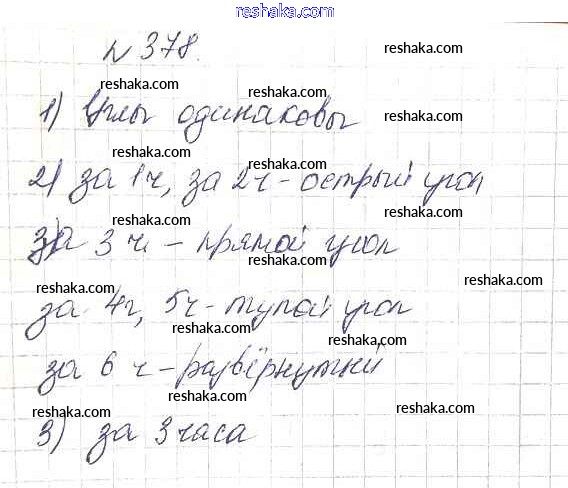 reshaka.com
№ 378.
reshaka.com
reshaka.com
reshaka.com
reshaka.com
1) Углы одинаковы
reshaka.com
reshaka.com
2) за 1ч, за 2ч - острый угол
reshaka.com
reshaka.com
за 3 ч - прямой угол
reshaka.com
reshaka.com
reshaka.com
за 4ч, 5ч - тупой угол
reshaka.com
reshaka.com
за 6 ч - развёрнутый
reshaka.com
reshaka.com
3) за 3 часа
reshaka.com
reshaka.com
reshaka.com